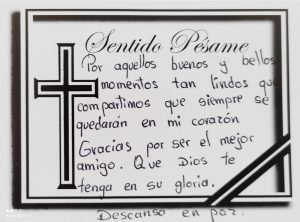 Sentido Pésame
Por aquellos buenos y bellos
momentos tan lindos que
compartimos que siempre se
quedarán en mi corazón
Gracias por ser el mejor
amigo. Que Dios te
tenga en su gloria.
Descansa en paz.